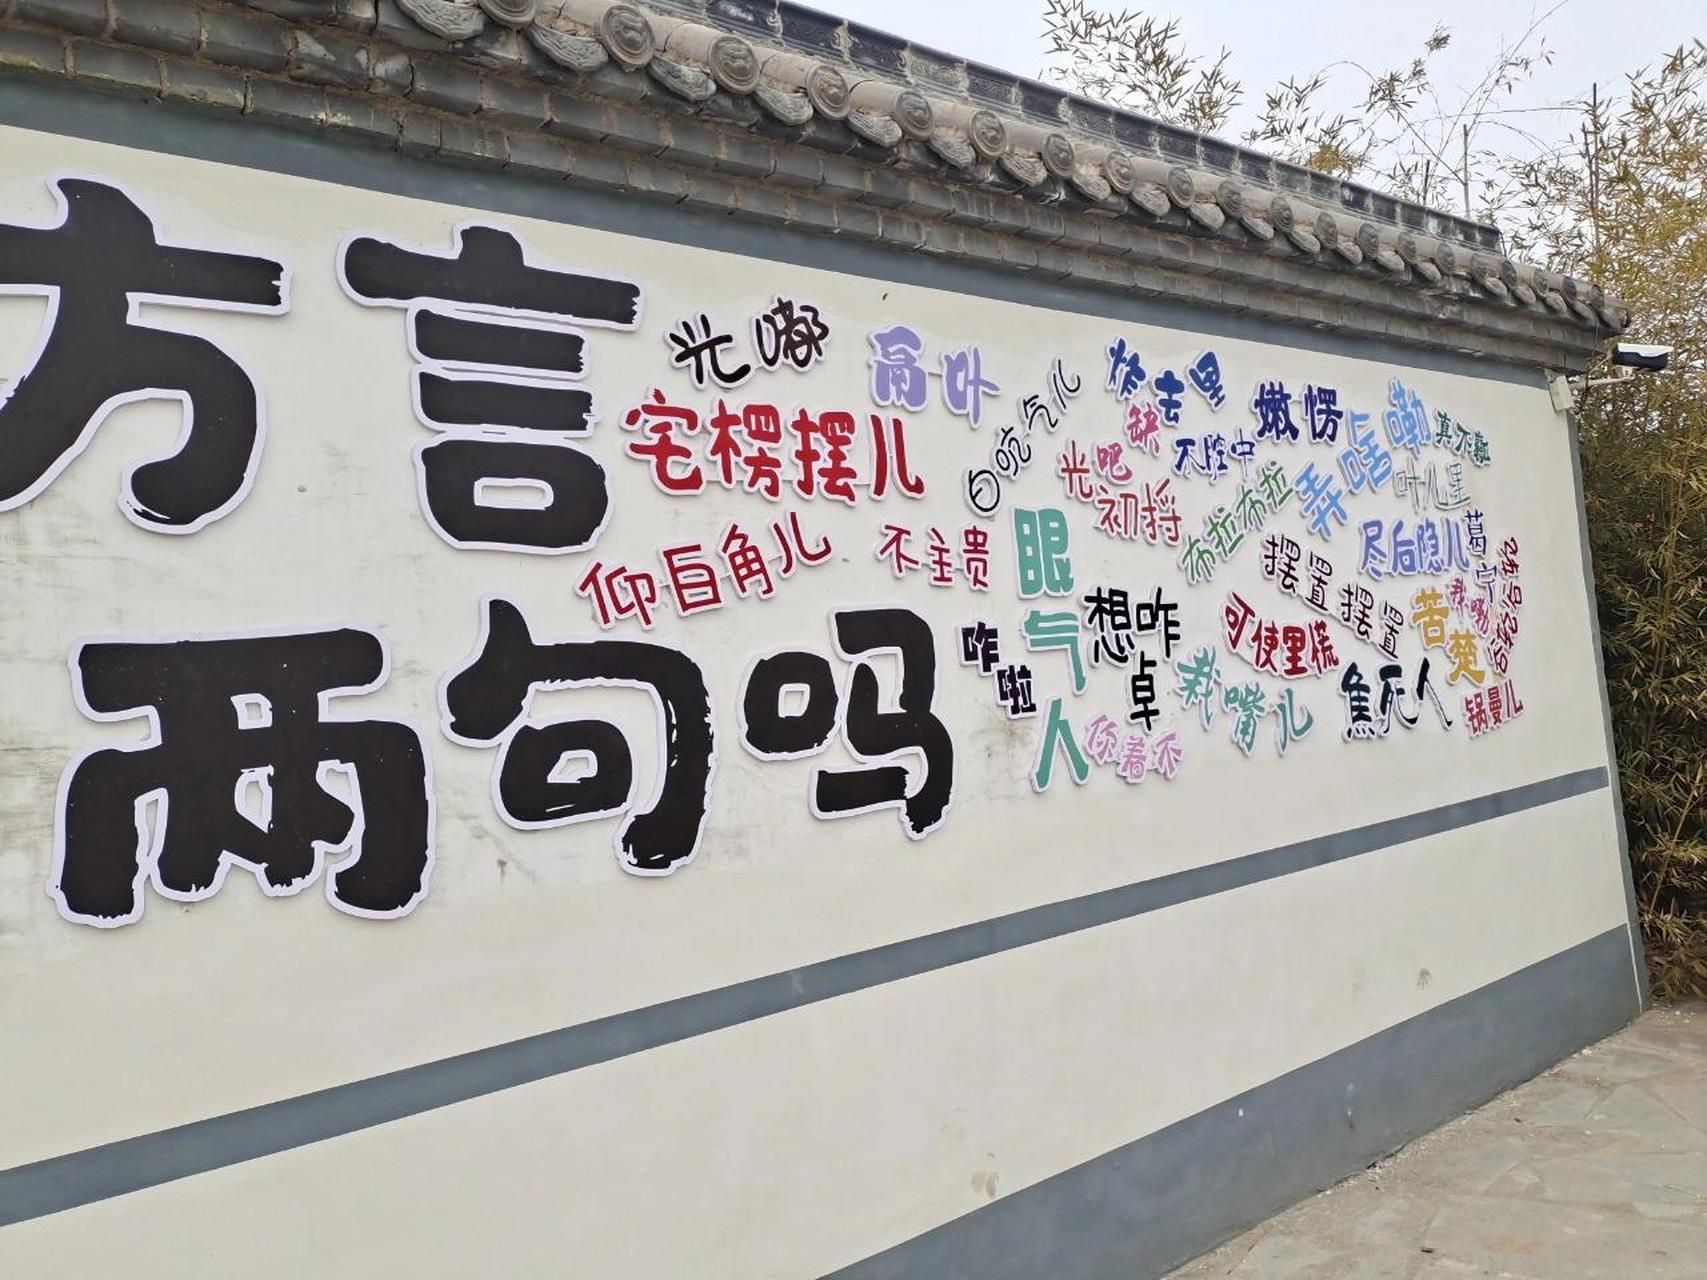 方言
两句吗
光嘟
鬲卟
宅楞摆儿
白吭气儿
炸去里
缺
嫩愣
弄啥嘞
真不瓤
光吧
不腔中
叶儿里
初捋
布拉布拉
仰白角儿
不主贵
眼气人
摆置摆置
尽后隐儿
葛宁
想咋卓
咋啦
可使里慌
苦楚
栽嘴儿
焦死人
锅曼儿